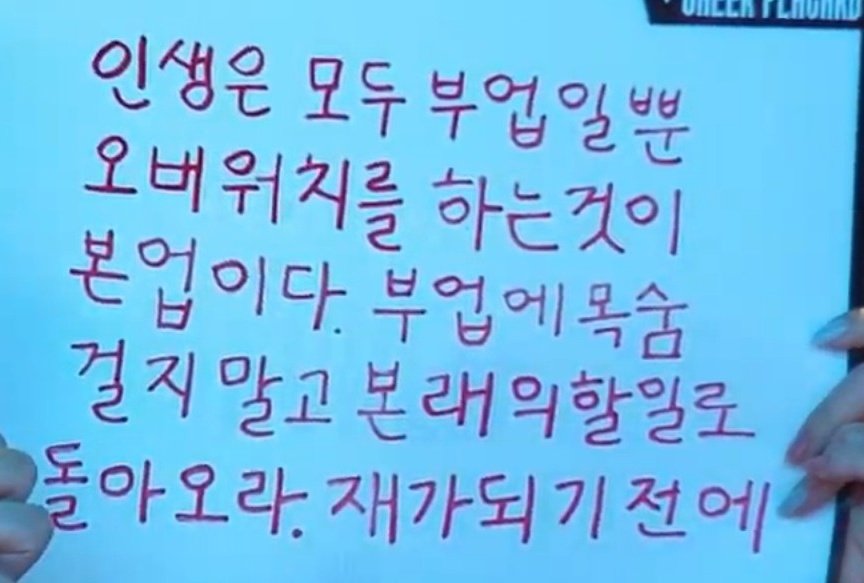 CHEER PLACARD
인생은 모두 부업일뿐
오버워치를 하는것이
본업이다. 부업에 목숨
걸지 말고 본래의할일로
돌아오라. 재가되기전에